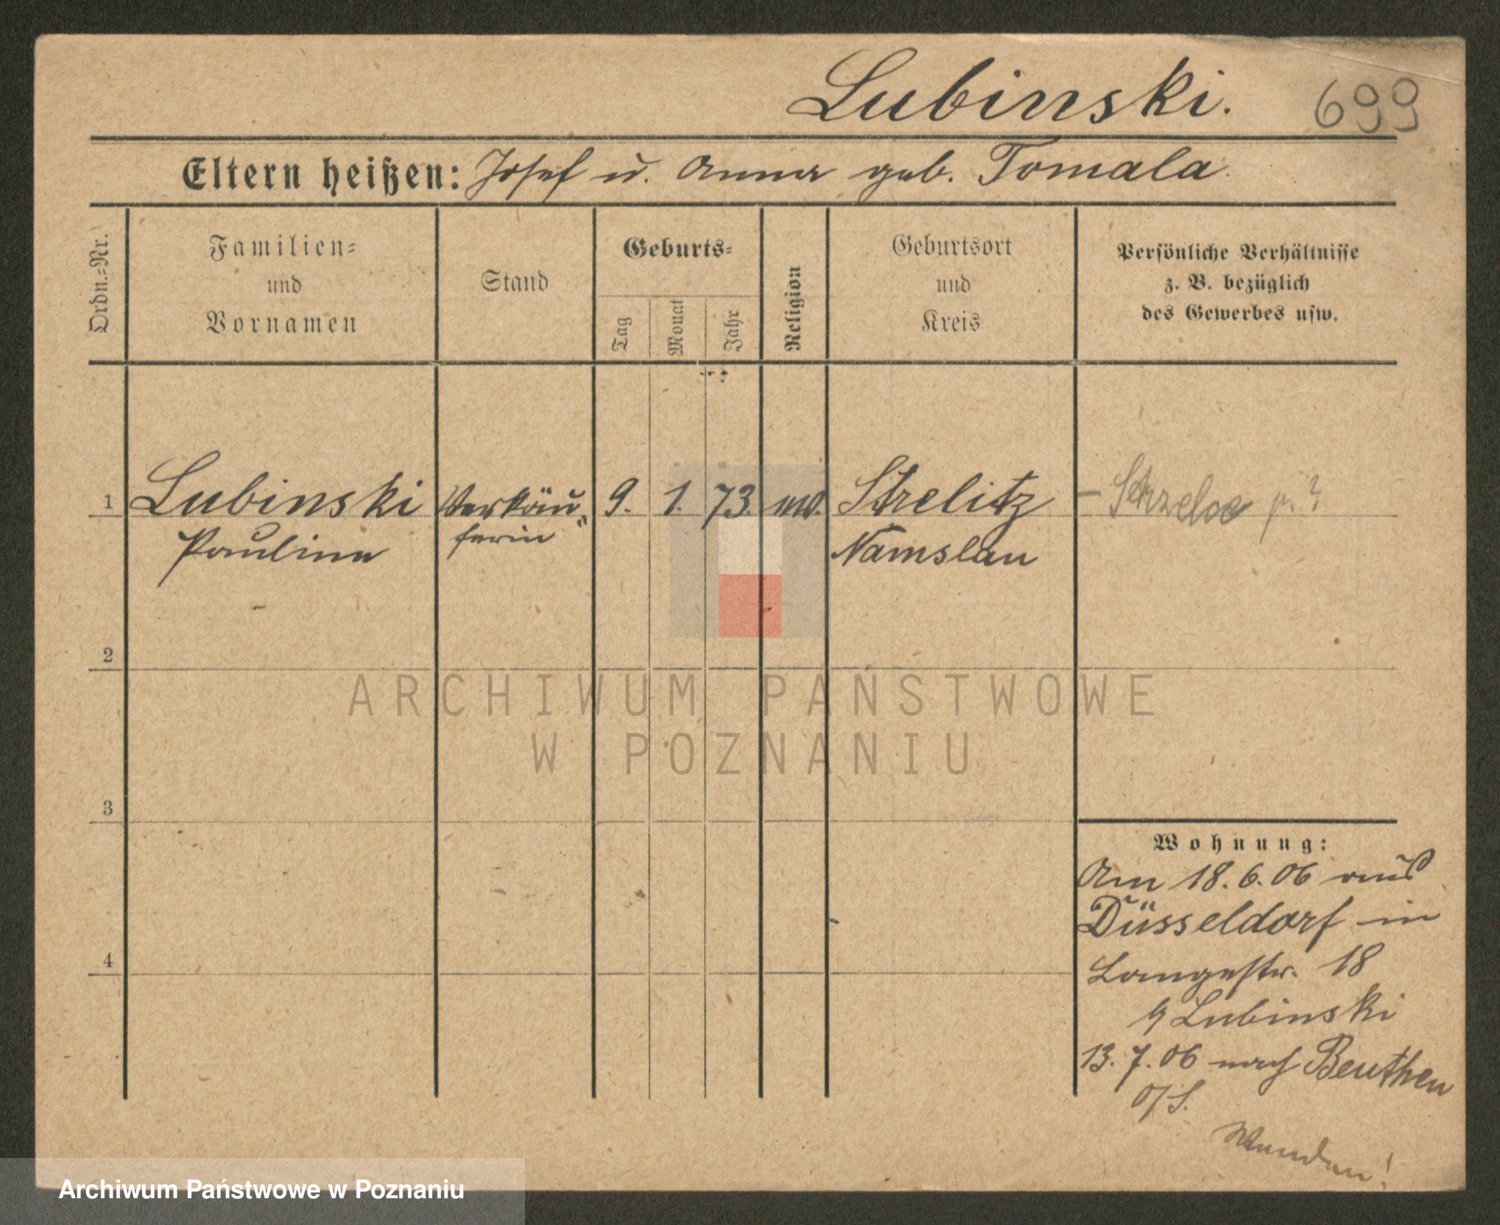 Lubinski.
699
Eltern heißen: Josef u. Anna geb. Tomala
Ordn.-Nr.
Familien-
und
Vornamen
Stand
Geburts-
Tag
Monat
Jahr
Religion
Geburtsort
und
Kreis
Persönliche Verhältnisse
z. B. bezüglich
des Gewerbes usw.
1
Lubinski
Pauline
Verkäu-
ferin
9. 1. 73.
Strelitz
Namslau
2
3
4
Wohnung:
Am 18.6.06 aus
Düsseldorf in
Langestr. 18
Lubinski
13.7.06 nach Beuthen
O/S.
ARCHIWUM PAŃSTWOWE
W POZNANIU
Archiwum Państwowe w Poznaniu